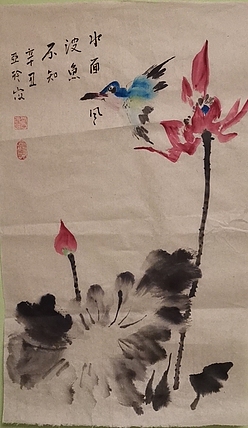 水面风
波魚
不知
辛丑